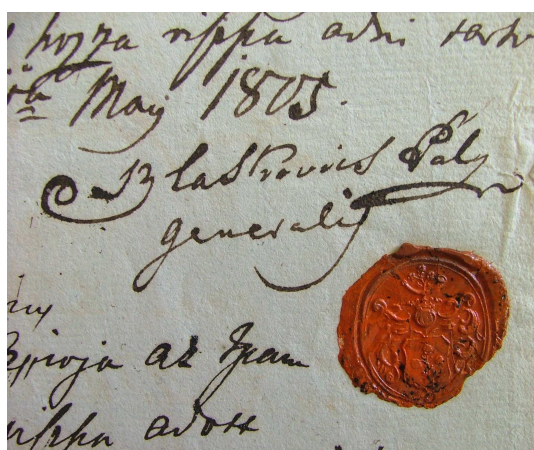 hozza vissza adni tarto
May 1805.
Blaskovics Pály
generalis
az Ipam
vissza adott